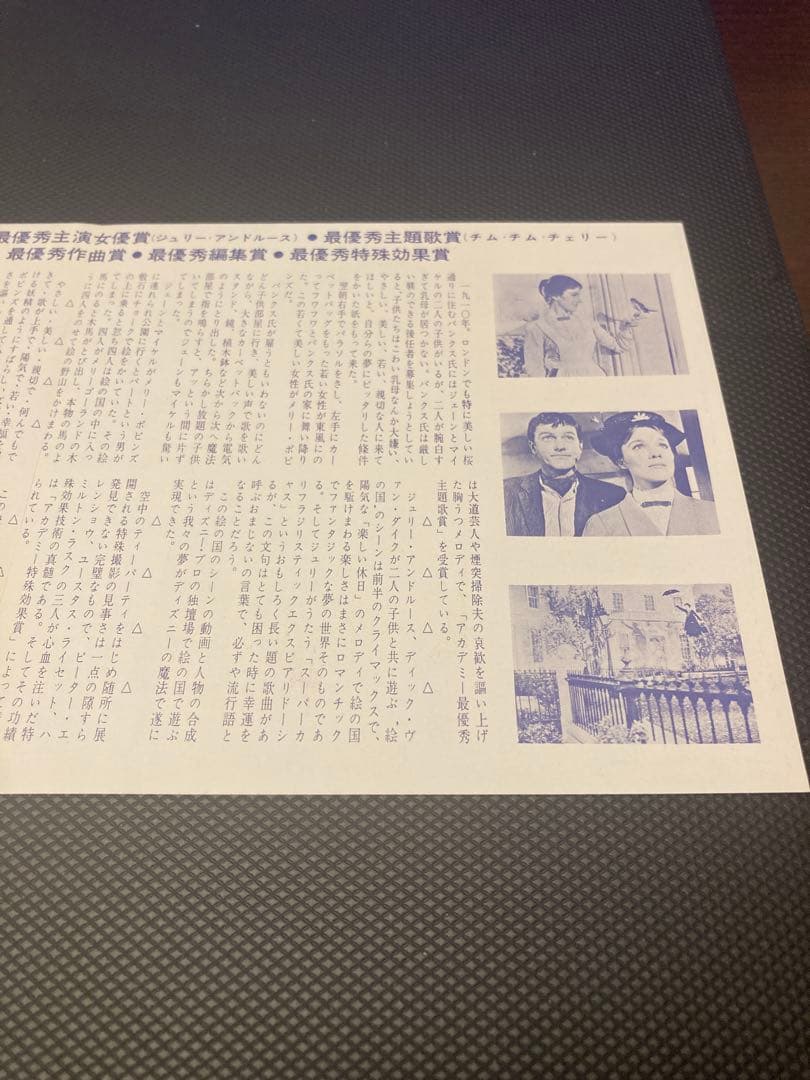 最優秀主演女優賞(ジュリー・アンドルース) ● 最優秀主題歌賞(チム・チム・チェリー)
最優秀作曲賞 ● 最優秀編集賞 ● 最優秀特殊効果賞
一九一〇年。ロンドンでも特に美しい桜
通りに住むバンクス氏にはジェーンとマイ
ケルの二人の子供がいるが、二人が腕白す
ぎて乳母が居つかない。バンクス氏は厳し
い躾のできる後任者を募集しようとしてい
ると、子供たちはこわい乳母なんか大嫌い、
やさしい、美しい、若い、親切な人に来て
ほしいと、自分らの夢にピッタリした條件
をかいた紙をもって来た。
翌朝右手でパラソルをさし、左手にカー
ペットバッグをもった若い女性が東風にの
ってフワフワとバンクス氏の家に舞い降り
た。この若くて美しい女性がメリー・ポピ
ンズだ。
バンクス氏が雇うともいわないのにどん
どん子供部屋に行き、美しい声で歌を歌い
ながら、大きなカーペットバックから電気
スタンド、鏡、植木鉢など次から次へ魔法
のようにとり出した。ちらかし放題の子供
部屋で指を鳴らすと、アッという間に片ず
いてしまうのでジェーンもマイケルも驚い
てしまった。
ジェーンとマイケルがメリー・ポピンズ
に連れられ公園に行くとバートという男が
敷石にチョークで絵をかいていた。その絵
の上に乗ると忽ち四人は絵の国の中に入っ
てしまった。四人がメリーゴーランドの木
馬にのると木馬がとび出し、本物の馬のよ
うに四人をのせて絵の野山をかけまわる。
△ △ △
やさしい・美しい・親切で・何んでもで
きて・歌が上手で・陽気で・若い・幸福を
は大道芸人や煙突掃除夫の哀歓を謳い上げ
た胸うつメロディで、「アカデミー最優秀
主題歌賞」を受賞している。
△ △ △
ジュリー・アンドルース、ディック・ヴ
ァン・ダイクが二人の子供と共に遊ぶ、“絵
の国”のシーンは前半のクライマックスで、
陽気な「楽しい休日」のメロディで絵の国
を駆けまわる楽しさはまさにロマンチック
でファンタジックな夢の世界そのものであ
る。そしてジュリーがうたう「スーパーカ
リフラジリスティックエクスピアリドーシ
ャス」というおもしろく長い題の歌曲があ
るが、この文句はとても困った時に幸運を
呼ぶおまじないの言葉で、必ずや流行語と
なることだろう。
この絵の国のシーンの動画と人物の合成
はディズニー・プロの独壇場で絵の国で遊ぶ
という我々の夢がディズニーの魔法で遂に
実現できた。
△ △ △
空中のティーパーティをはじめ随所に展
開される特殊撮影の見事さは一点の隙すら
発見できない完璧なもので、ピーター・エ
レンショウ、ユースタス・ライセット、ハ
ミルトン・ラスクの三人が心血を注いだ特
殊効果技術の真髄である。そしてその功績
は「アカデミー特殊効果賞」によって
られている。